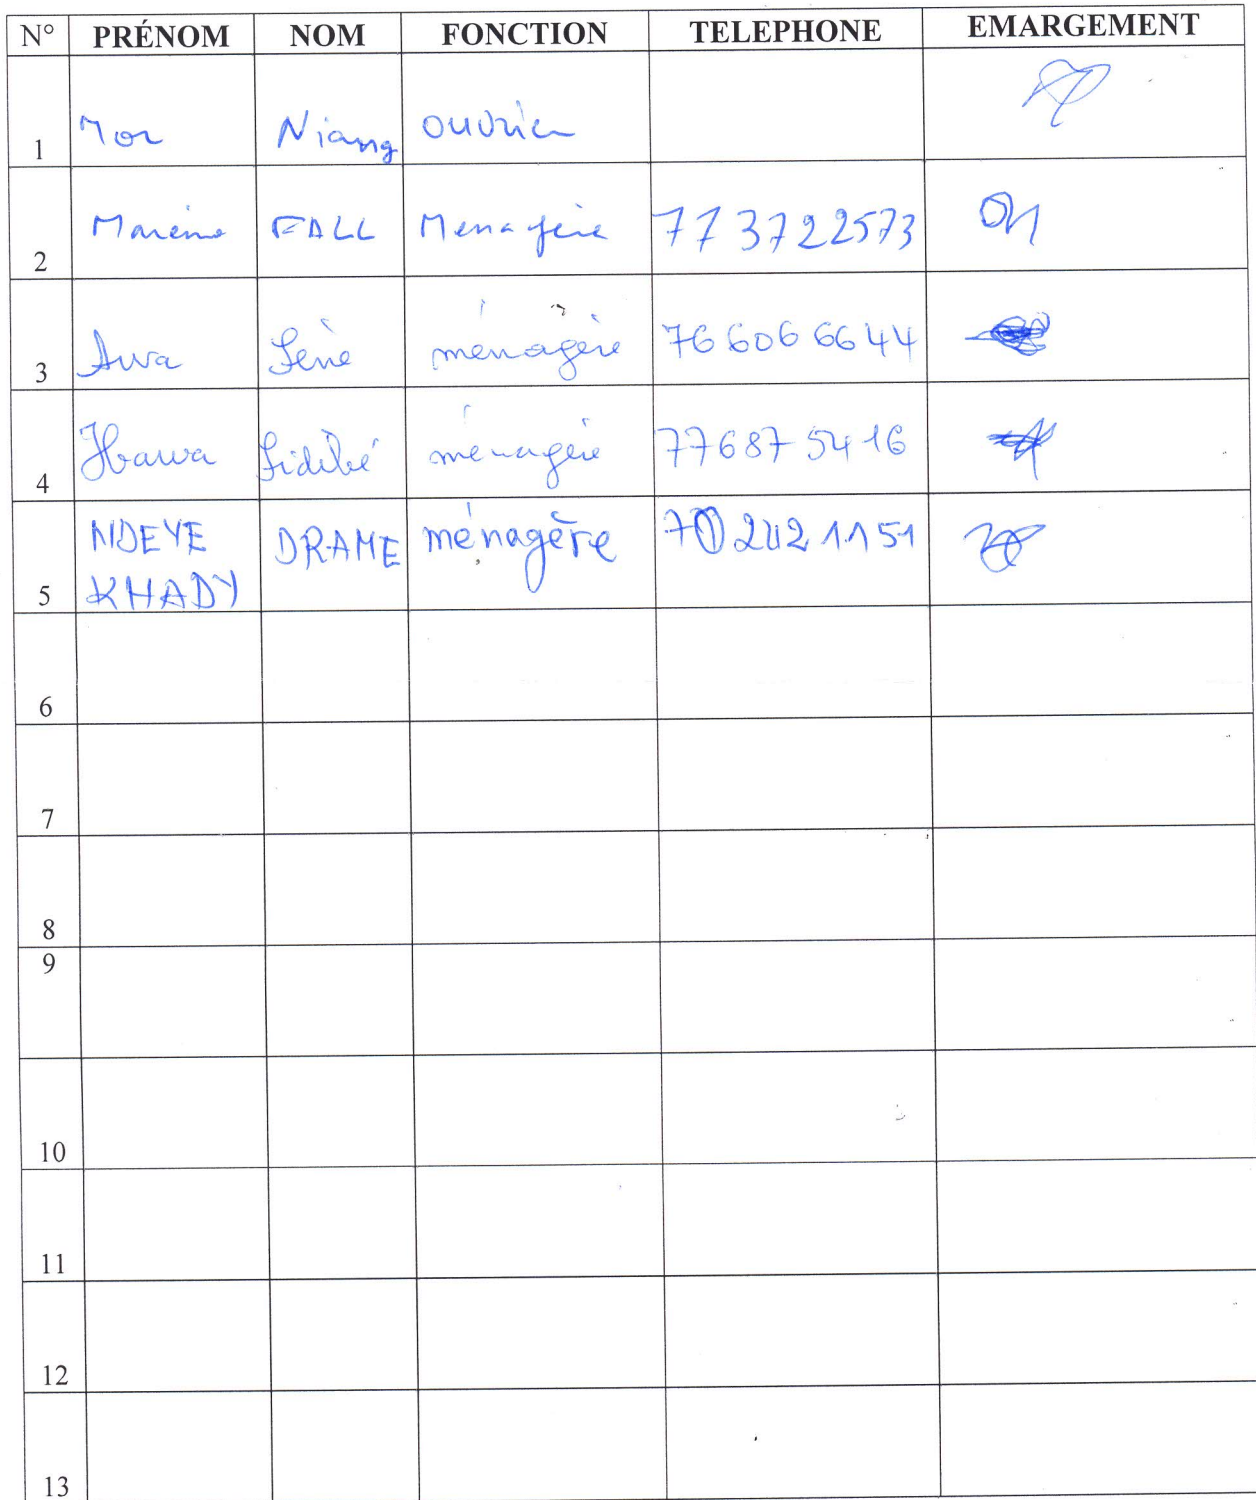 N° PRÉNOM NOM FONCTION TELEPHONE EMARGEMENT
1 Mor Niang ouvrier
2 Marème FALL Menagère 773722573
3 Awa Sène ménagère 76 606 66 44
4 Hawa Sidibé ménagère 77687 54 16
5 NDEYE KHADY DRAME ménagère 70 242 11 51
6
7
8
9
10
11
12
13